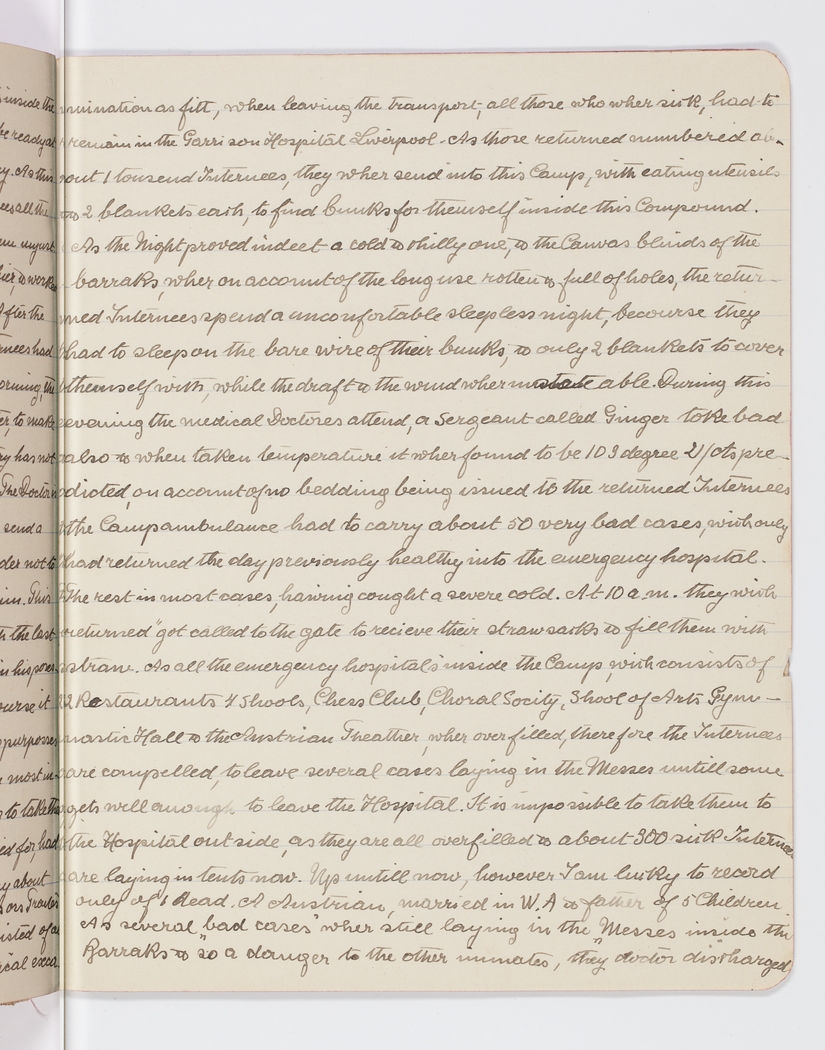 mination as fitt, when leaving the transport, all those who wher sick, had to
remain in the Garrison Hospital Liverpool. As those returned numbered ab-
out 1 tousend Internees, they wher send into this Camp, with eating utensils
& 2 blankets each, to find bunks for themself inside this Compound.
As the Night proved indeet a cold & chilly one, & the Canvas blinds of the
barraks, wher on account of the long use rotten & full of holes, the retur-
ned Internees spend a unconfortable sleepless night, becourse they
had to sleep on the bare wire of their bunks, & only 2 blankets to cover
themself with, while the draft & the wind wher able. During this
evening the medical Doctores attend, a Sergeant called Ginger toke bad
also & when taken temperature it wher found to be 103 degree 2/10ts pre-
dicted, on account of no bedding being issued to the returned Internees
the Camp ambulance had to carry about 50 very bad cases, wich only
had returned the day previously healthy into the emergency hospital.
The rest in most cases, hawing cought a severe cold. At 10 a.m. they wich
returned" got called to the gate to recieve their straw sacks & fill them with
straw. As all the emergency hospital's inside the Camp, wich consists of
2 Restaurants 4 Shools, Chess Club, Choral Socity, Shool of Arts Gym-
nastic Hall & the Austrian Theather, wher over filled, therefore the Internees
are compelled, to leave several cases laying in the Messes untill some
gets well anough to leave the Hospital. It is impossible to take them to
the Hospital outside, as they are all overfilled & about 300 sick Internees
are laying in tents now. Up untill now, however I am lucky to record
only of 1 dead. A Austrian, married in W.A & father of 5 Children
As several "bad cases" wher still laying in the "Messes inside the
Barraks & "so a danger to the other inmates, they doctor discharged